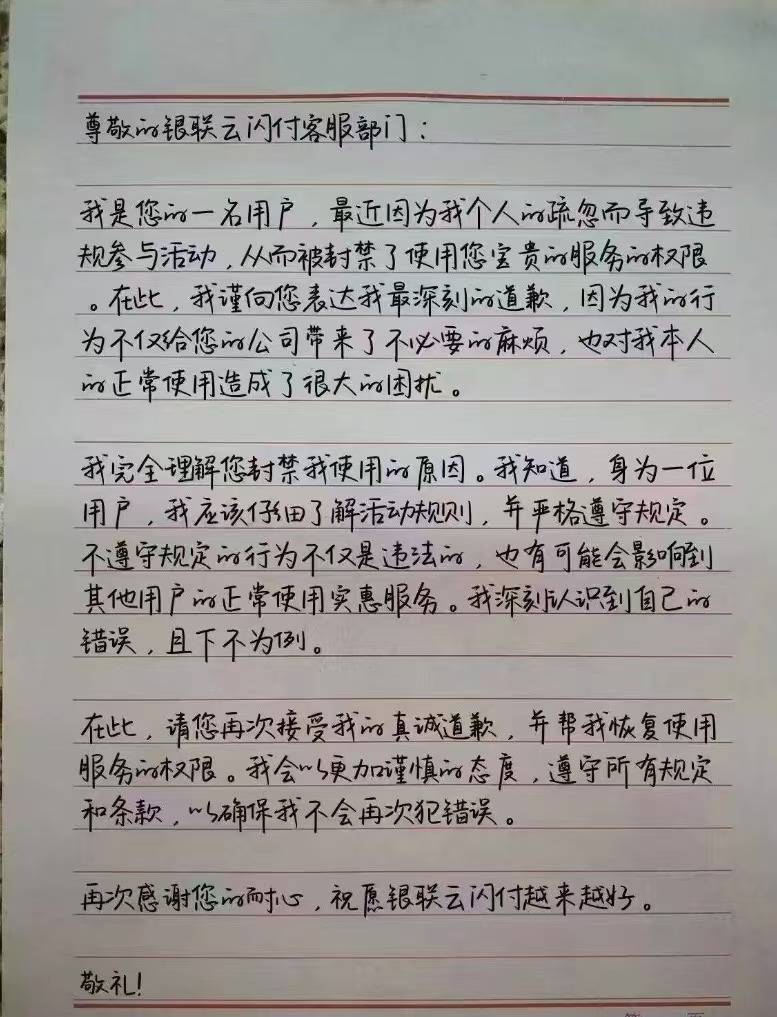 尊敬的银联云闪付客服部门：
我是您的一名用户，最近因为我个人的疏忽而导致违
规参与活动，从而被封禁了使用您宝贵的服务的权限
。在此，我谨向您表达我最深刻的道歉，因为我的行
为不仅给您的公司带来了不必要的麻烦，也对我本人
的正常使用造成了很大的困扰。
我完全理解您封禁我使用的原因。我知道，身为一位
用户，我应该仔细了解活动规则，并严格遵守规定。
不遵守规定的行为不仅是违法的，也有可能会影响到
其他用户的正常使用实惠服务。我深刻认识到自己的
错误，且下不为例。
在此，请您再次接受我的真诚道歉，并帮我恢复使用
服务的权限。我会以更加谨慎的态度，遵守所有规定
和条款，以确保我不会再次犯错误。
再次感谢您的耐心，祝愿银联云闪付越来越好。
敬礼！